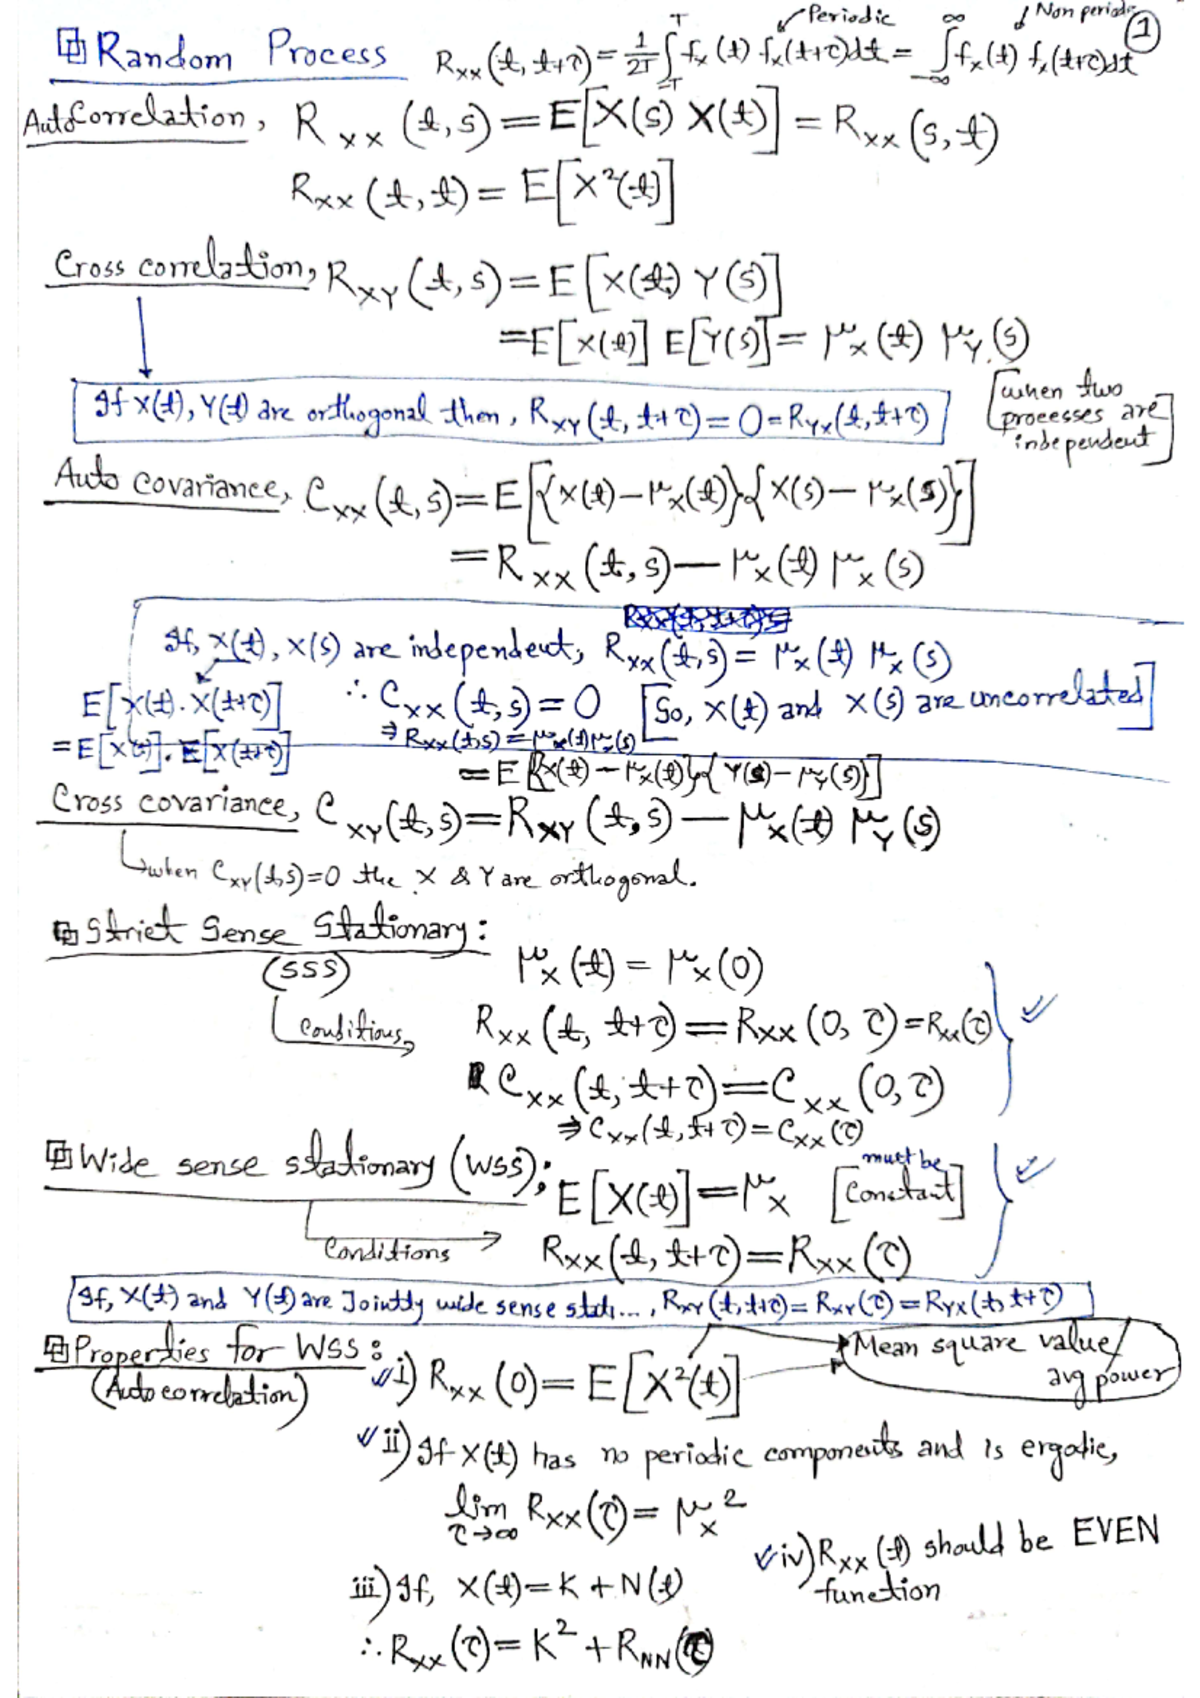 Random Process R_XX(t, t+τ) = 1/2T ∫_{-T}^{T} f_x(t) f_x(t+τ)dt = ∫_{-∞}^{∞} f_x(t) f_x(t+τ)dt
Periodic
Non periodic
1
AutoCorrelation, R_XX (t,s) = E[X(s) X(t)] = R_XX (s,t)
R_XX (t,t) = E[X²(t)]
Cross correlation, R_XY (t,s) = E[X(t) Y(s)]
= E[X(t)] E[Y(s)] = μ_X(t) μ_Y(s)
[when two processes are independent]
If X(t), Y(t) are orthogonal then, R_XY(t, t+τ) = 0 = R_YX(t, t+τ)
Auto covariance, C_XX (t,s) = E[{X(t) − μ_X(t)}{X(s) − μ_X(s)}]
= R_XX (t,s) − μ_X(t) μ_X(s)
If, X(t), X(s) are independent, R_XX(t,s) = μ_X(t) μ_X(s)
E[X(t). X(t+τ)]
= E[X(t)]. E[X(t+τ)]
∴ C_XX (t,s) = 0 [So, X(t) and X(s) are uncorrelated]
⇒ R_XX(t,s) = μ_X(t) μ_X(s)
= E[{X(t) − μ_X(t)}{Y(s) − μ_Y(s)}]
Cross covariance, C_XY(t,s) = R_XY (t,s) − μ_X(t) μ_Y(s)
when C_XY(t,s)=0 the X & Y are orthogonal.
Strict Sense Stationary:
(SSS)
μ_X (t) = μ_X (0)
Conditions,
R_XX (t, t+τ) = R_XX (0, τ) = R_XX(τ)
C_XX (t, t+τ) = C_XX (0, τ)
⇒ C_XX (t, t+τ) = C_XX (τ)
Wide sense stationary (WSS); E[X(t)] = μ_X [must be Constant]
Conditions R_XX (t, t+τ) = R_XX (τ)
If, X(t) and Y(t) are Jointly wide sense stati..., R_XY(t, t+τ) = R_XY(τ) = R_YX(t, t+τ)
Properties for WSS:
(Autocorrelation)
i) R_XX (0) = E[X²(t)]
Mean square value/
avg power
ii) If X(t) has no periodic components and is ergodic,
lim τ→∞ R_XX(τ) = μ_X²
iv) R_XX (t) should be EVEN
function
iii) If, X(t) = K + N(t)
∴ R_XX (τ) = K² + R_NN(τ)